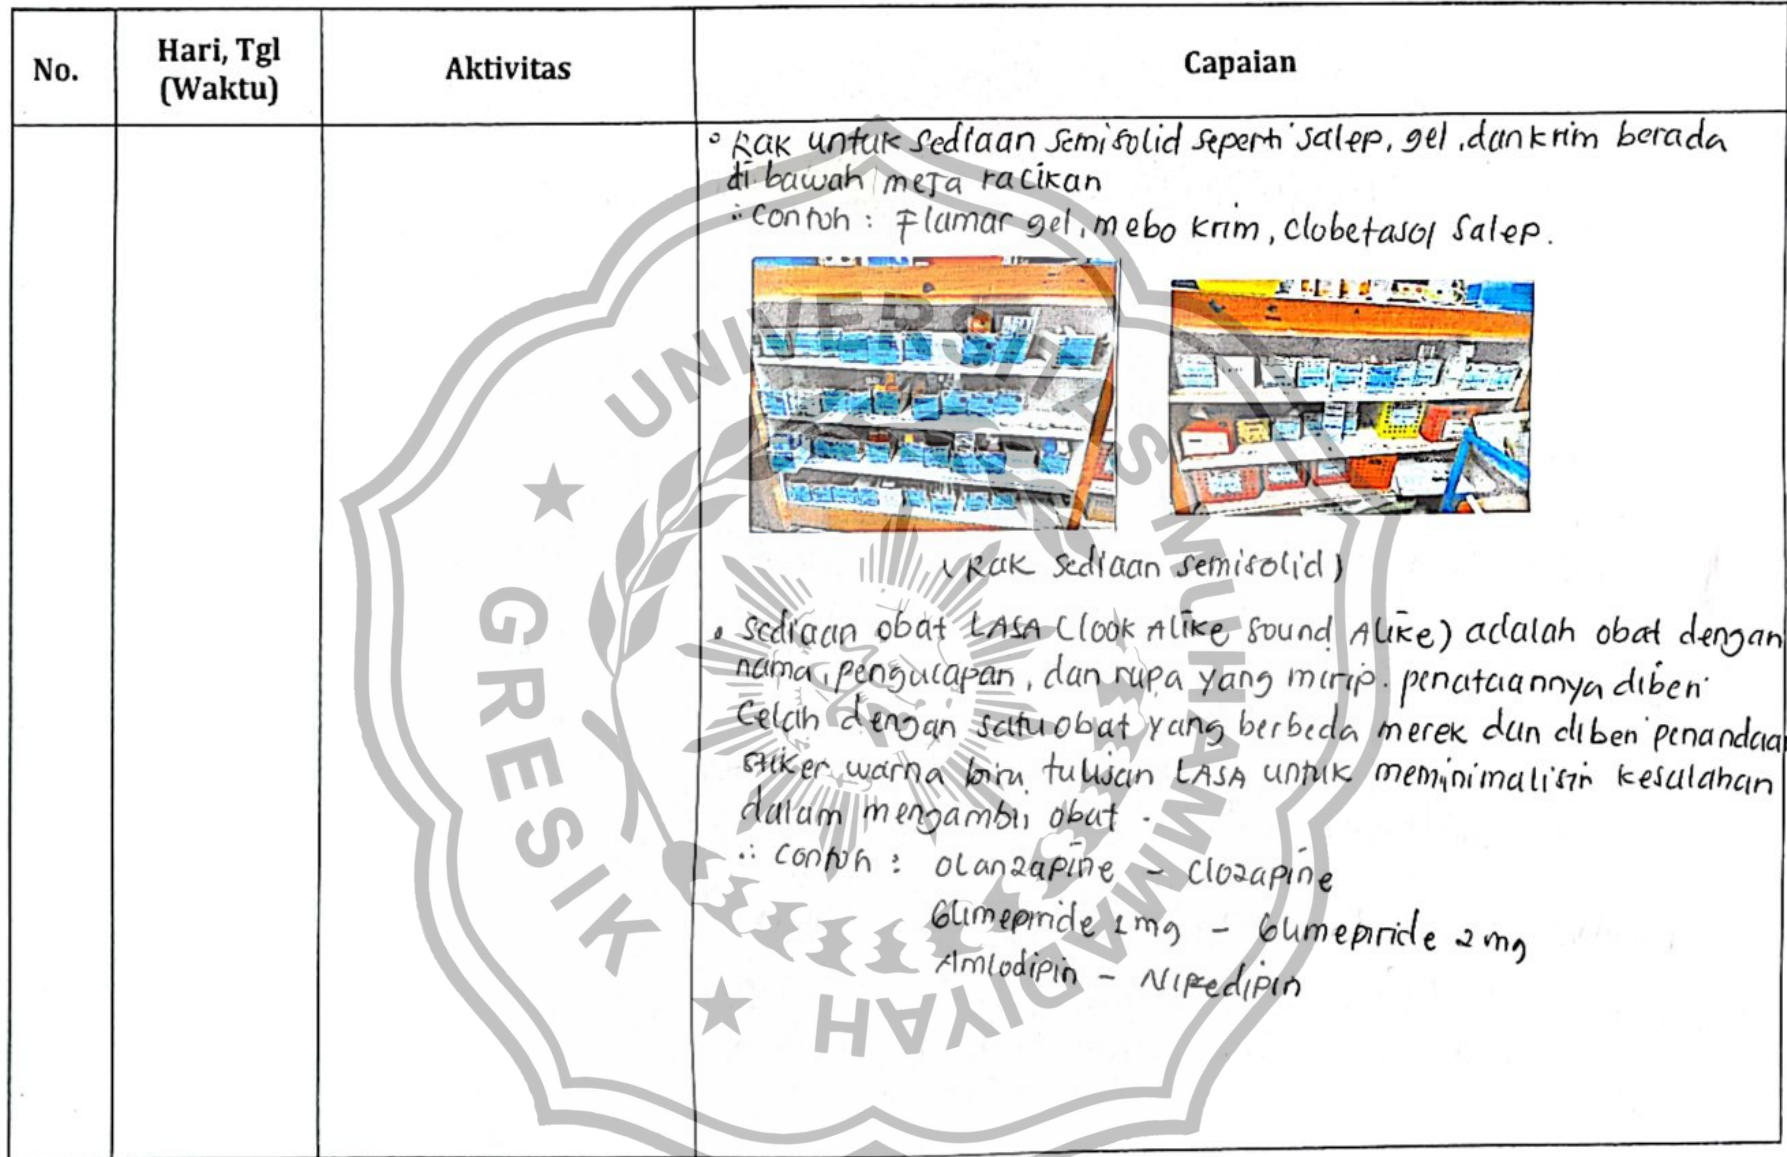 No.
Hari, Tgl
(Waktu)
Aktivitas
Capaian
• Rak untuk sediaan semisolid seperti salep, gel, dan krim berada
di bawah meja racikan
∴ Contoh : Flamar gel, mebo krim, clobetasol salep.
(Rak sediaan semisolid)
• Sediaan obat LASA (Look Alike Sound Alike) adalah obat dengan
nama, pengucapan, dan rupa yang mirip. penataannya diberi
celah dengan satu obat yang berbeda merek dan diberi penandaan
stiker warna biru tulisan LASA untuk meminimalisir kesalahan
dalam mengambil obat.
∴ Contoh : Olanzapine - Clozapine
Glimepiride 1 mg - Glimepiride 2 mg
Amlodipin - Nifedipin
UNIVERSITAS MUHAMMADIYAH
GRESIK